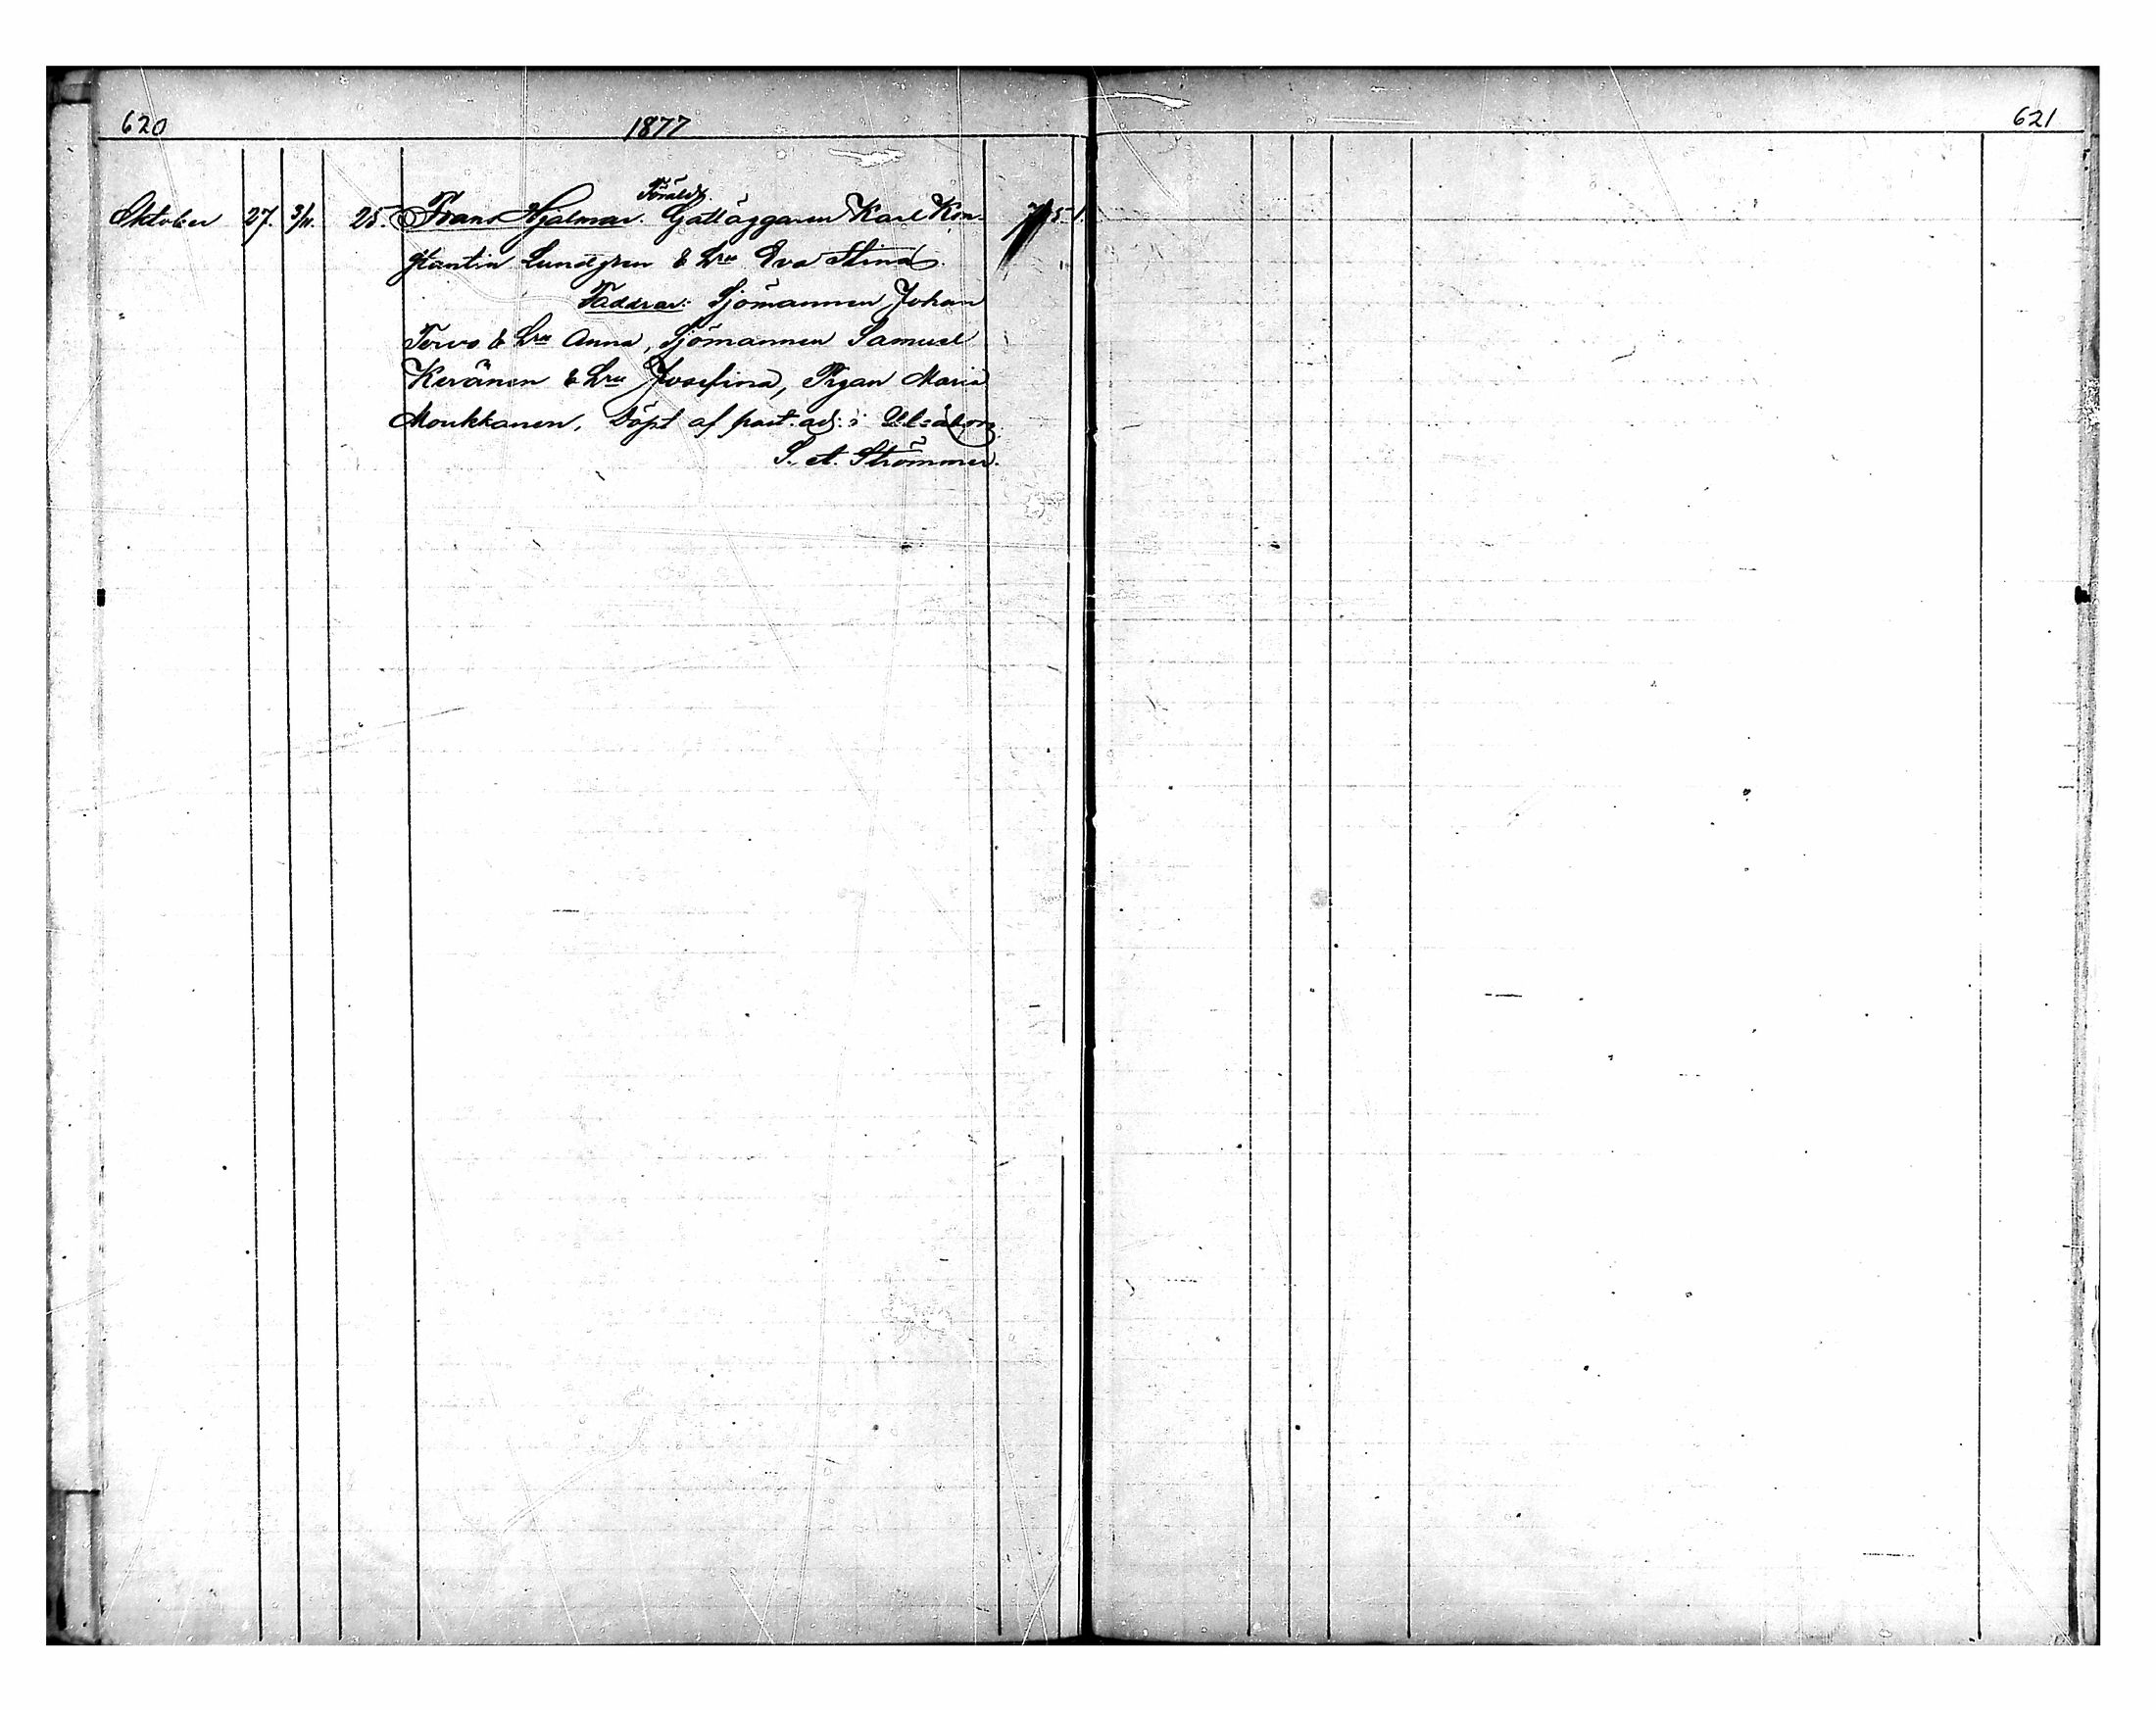 620
1877
621
Föräldr.
Oktober 27. 3/11. 25. Frans Hjalmar. Gålläggaren Karl Kon-
stantin Lundgren & Hru Eva Stina.
Faddrar: Sjömannen Johan
Tervo & Hru Anna, Sjömannen Samuel
Keränen & Hru Josefina, Pigan Maria
Moukkanen, Döpt af past. adj. i Uleåborg
S. A. Strömmer.